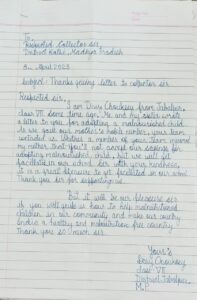 To,
Respected Collector sir,
District Katni, Madhya Pradesh
8... April 2023
Subject: Thanks giving letter to collector sir
Respected sir,
I am Devy Chouksey from Jabalpur,
class VII. Some time ago, Me and my sister wrote
a letter to you for adopting a malnourished child.
As we gave our mother's mobile number, your team
contacted us. Mother a member of your team inform
my mother that you'll not accept our savings for
adopting malnourished child, but we will get
felicitated in our school. Sir with your kindness,
it is a great pleasure to get facilited in our school
Thank you sir for supporting us.
But it will be our pleasure sir
if you will guide us how to help malnutritioned
children in our community and make our country
India a healthy and malnutrition free country.
Thank you so much sir.
Yours's
Devy Chouksey
class VII
District Jabalpur,
M.P.